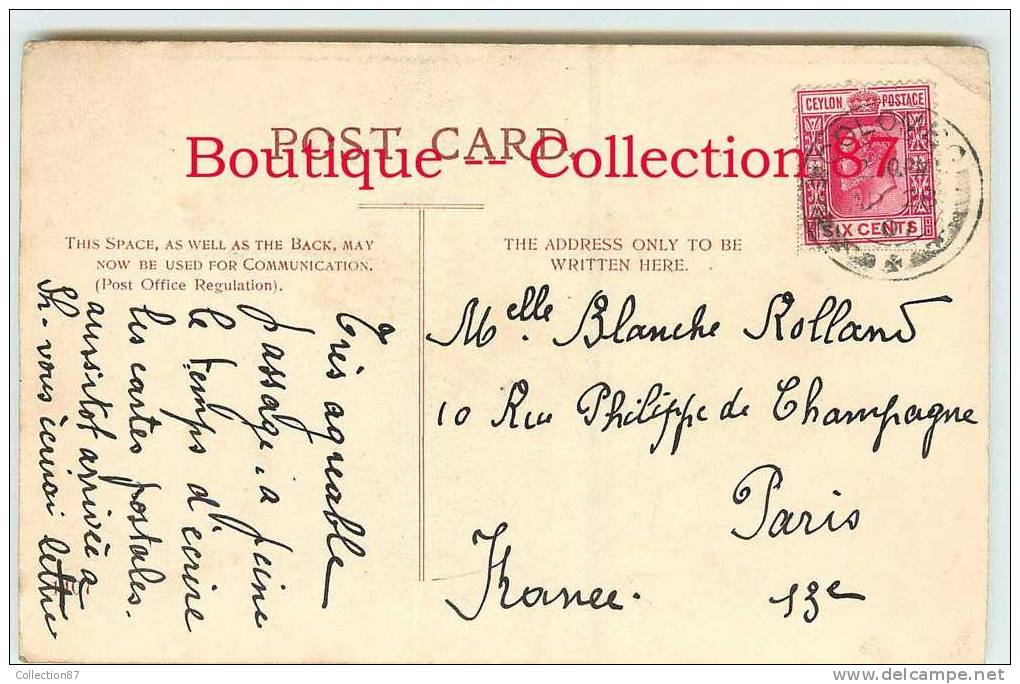 POST CARD.
Boutique -- Collection 87
CEYLON POSTAGE
SIX CENTS
COLOMBO
THIS SPACE, AS WELL AS THE BACK, MAY
NOW BE USED FOR COMMUNICATION.
(Post Office Regulation).
THE ADDRESS ONLY TO BE
WRITTEN HERE.
Très agréable
passage. a peine
le temps d'écrire
les cartes postales.
aussitot arrivée à
vous lettre
Melle. Blanche Rolland
10 Rue Philippe de Champagne
Paris
France. 13e
Collection87
www.delcampe.net